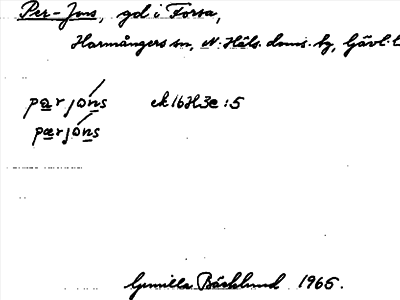 Per-Jons, gd i Forsa,
Harmångers sn, N. Häls. doms. bg, Gävl. l
pærjóns ek 16H3e:5
pærjóns
Gunilla Bäcklund 1965.